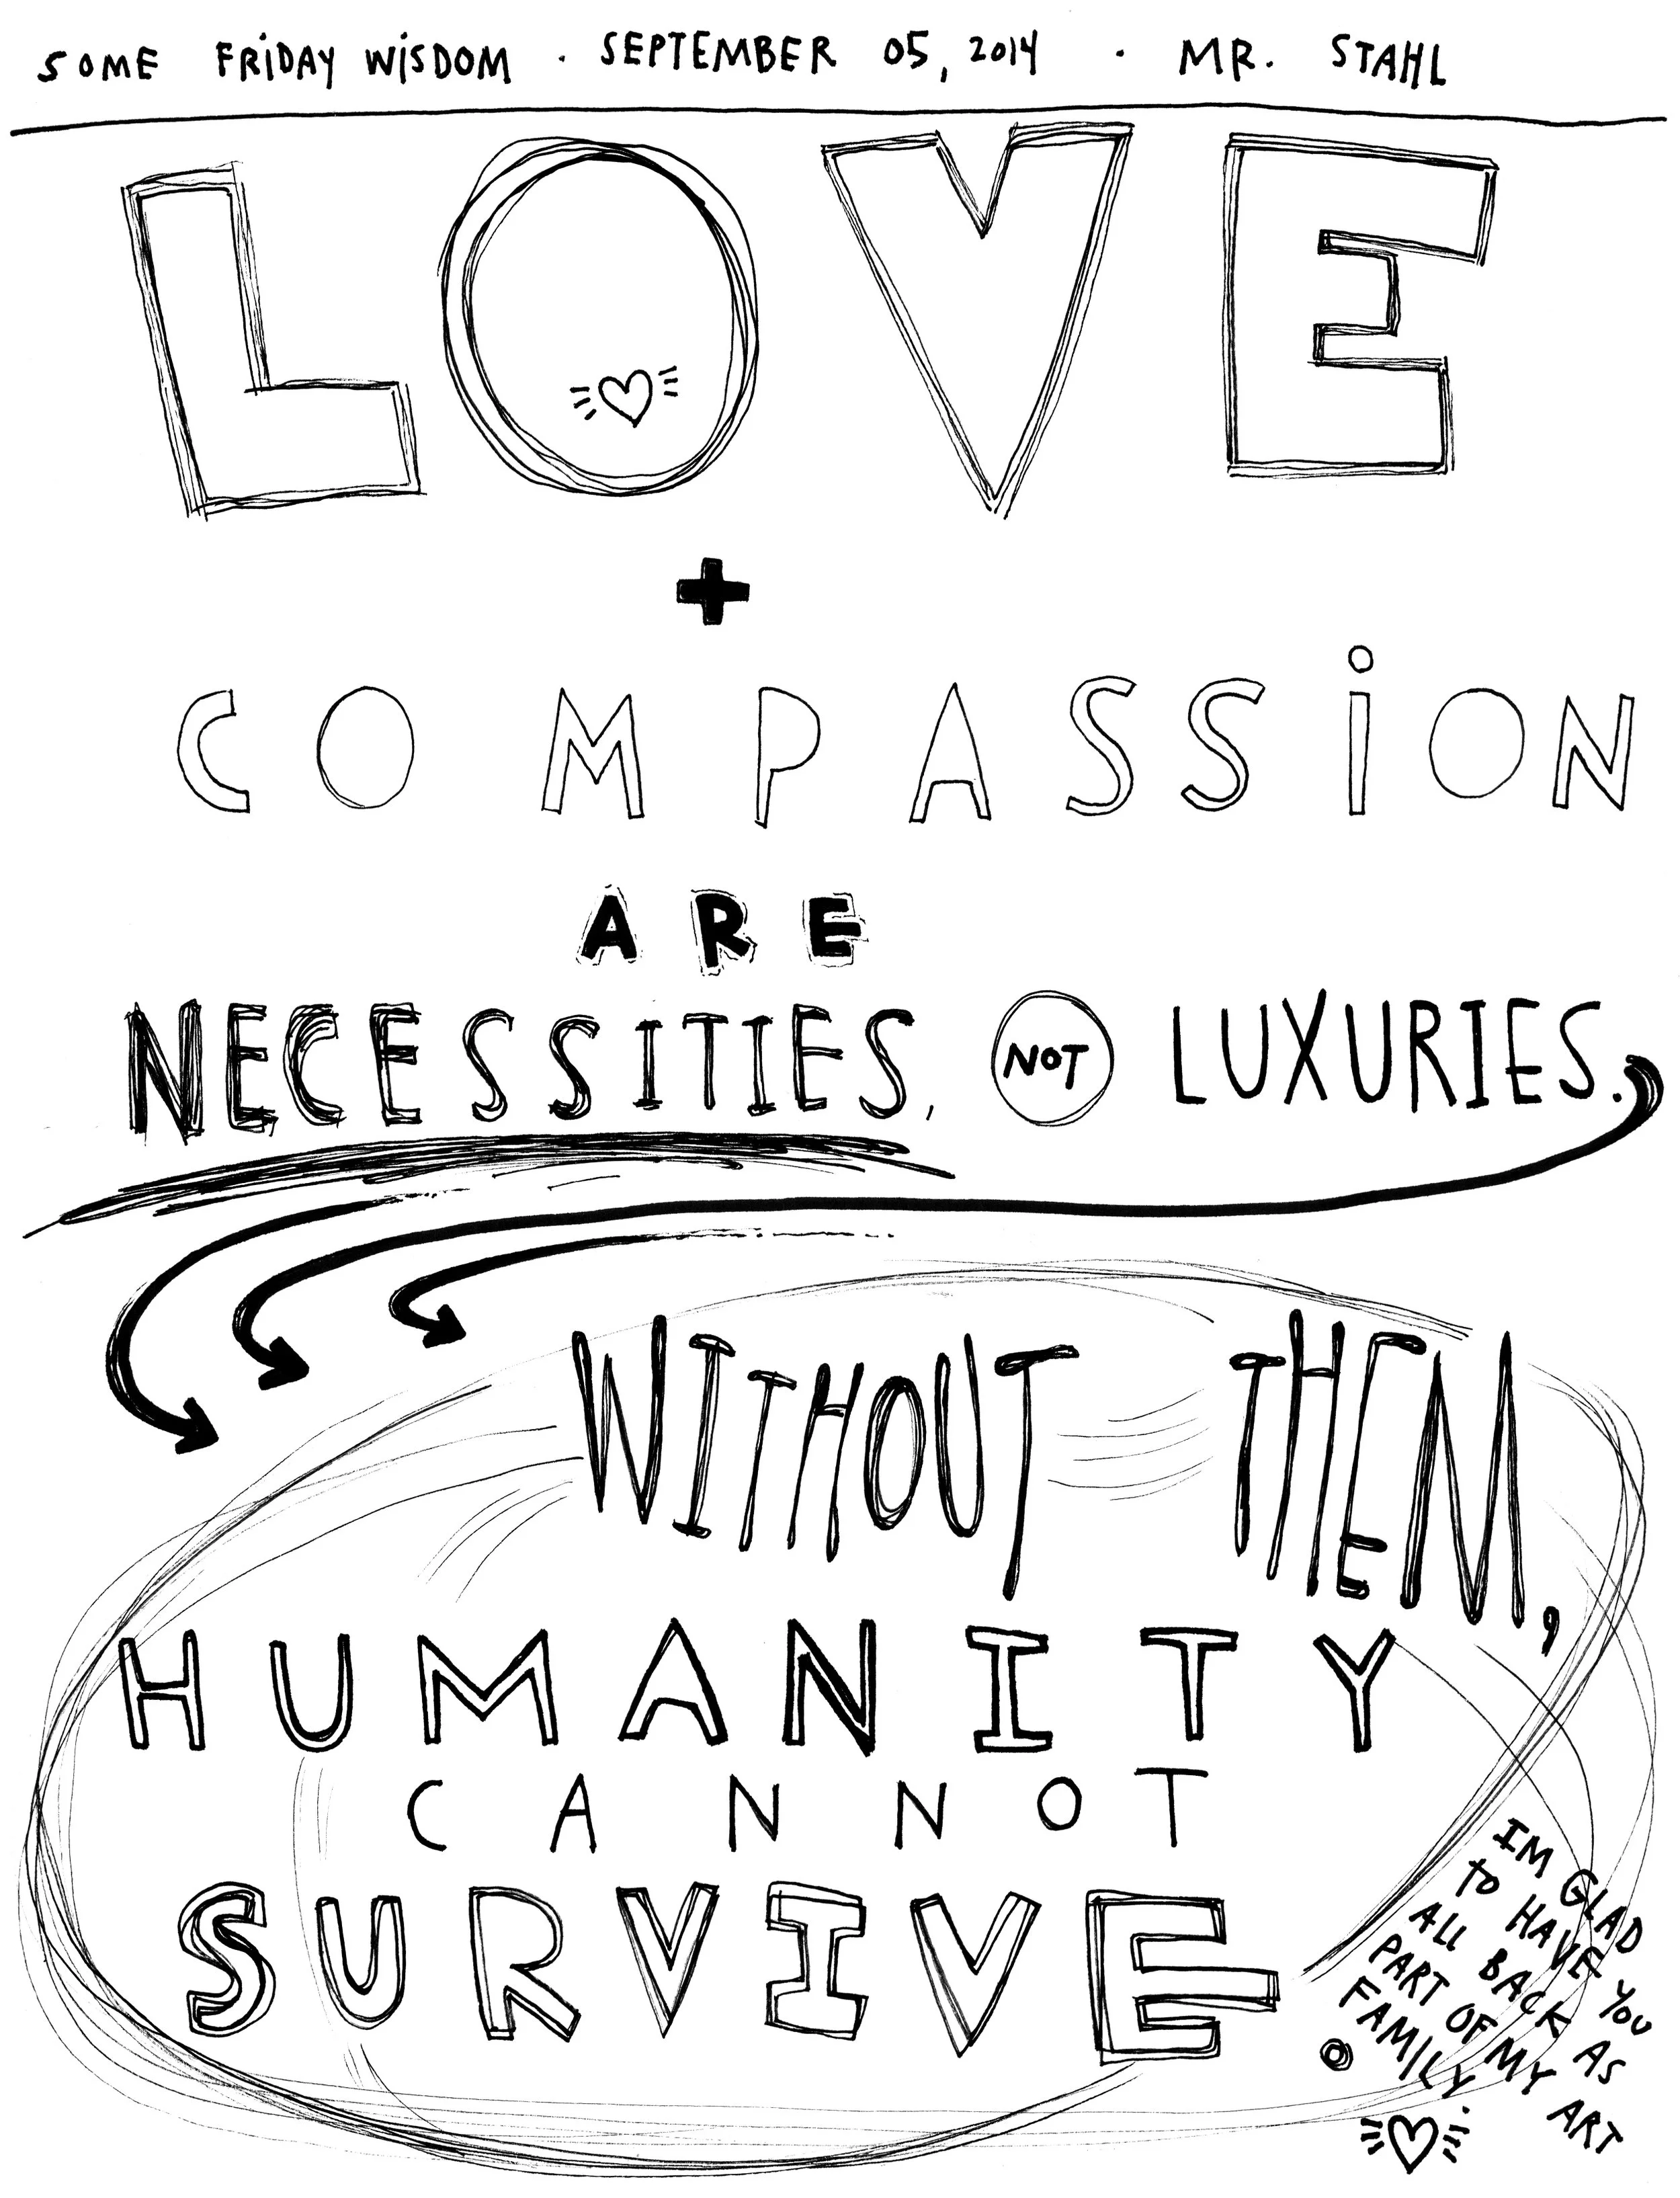 SOME FRIDAY WISDOM · SEPTEMBER 05, 2014 · MR. STAHL
LOVE
+
COMPASSION
ARE
NECESSITIES, NOT LUXURIES.
WITHOUT THEM,
HUMANITY
CANNOT
SURVIVE.
IM GLAD
TO HAVE YOU
ALL BACK AS
PART OF MY ART
FAMILY.